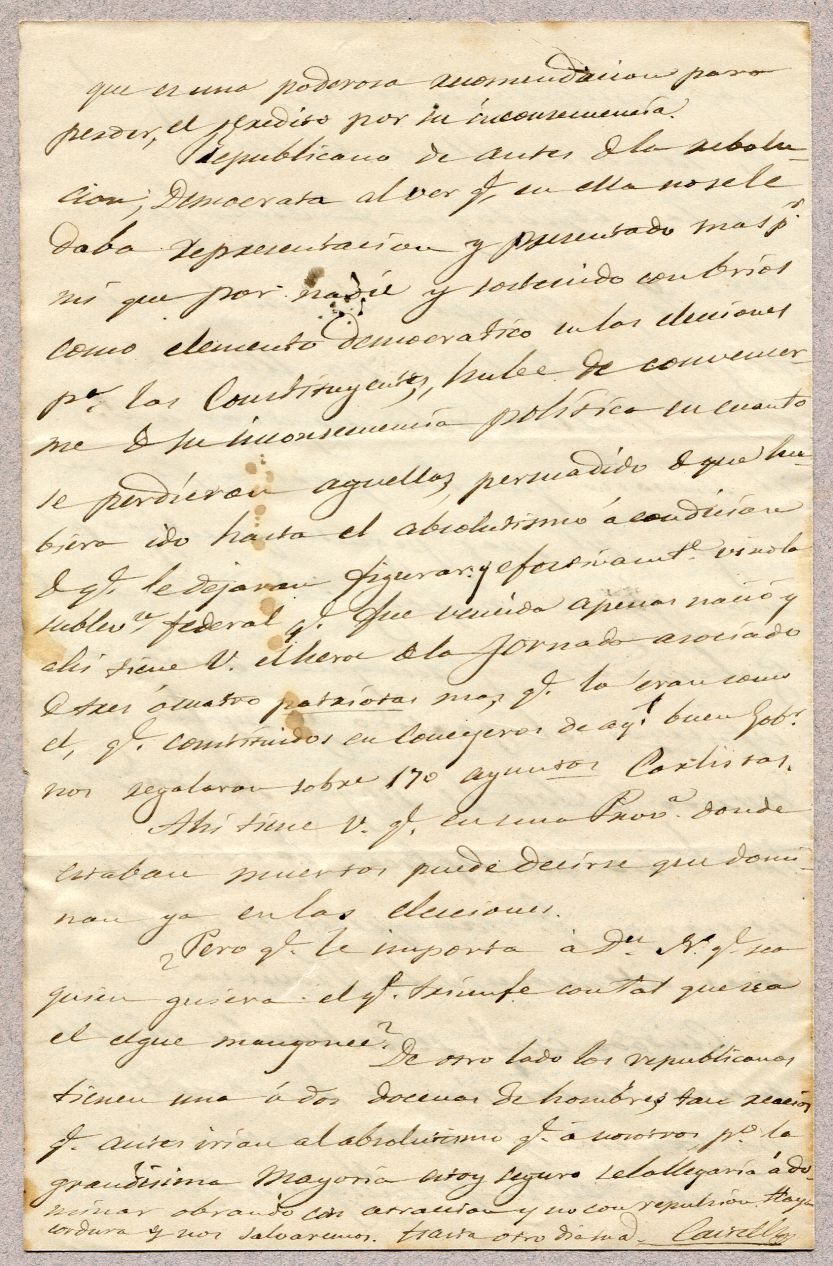 que es una poderosa recomendacion para
perder, el credito por su inconsecuencia.
Republicano de antes de la rebolu-
cion; Democrata al ver q.e en ella no se le
daba representacion y presentado mas p.r
mi que por nadie y sostenido con brios
como elemento democratico en las elecciones
p.a las Constituyentes, hube de convencer-
me de su inconsecuencia politica en cuanto
se perdieron aquellas, persuadido de que hu-
biera ido hasta el absolutismo á condicion
de q.e le dejaran figurar; y efectivamt.e vino la
sublev.on federal q.e fue vencida apenas nació y
ahi tiene V. el heroe de la Jornada asociado
de tres ó cuatro patriotas mas, q.e lo eran como
el, q.e constituidos en Consejeros de aq.l buen Gob.r
nos regalaron sobre 170 ayuntos Carlistas.
Ahi tiene V. q.e en una Prov.a donde
estaban muertos puede decirse que domi-
nan ya en las elecciones.
¿Pero q.e le importa á D.n N. q.e sea
quien quiera el q.e triunfe con tal que sea
el el que mangonee?
De otro lado los republicanos
tienen una ó dos docenas de hombres tan reacios
q.e antes irian al absolutismo q.e á nosotros, p.o la
grandisima mayoria estoy seguro se la llegaria á do-
minar obrando con atraccion y no con repulsion. Haya
cordura y nos salvaremos. Hasta otro dia